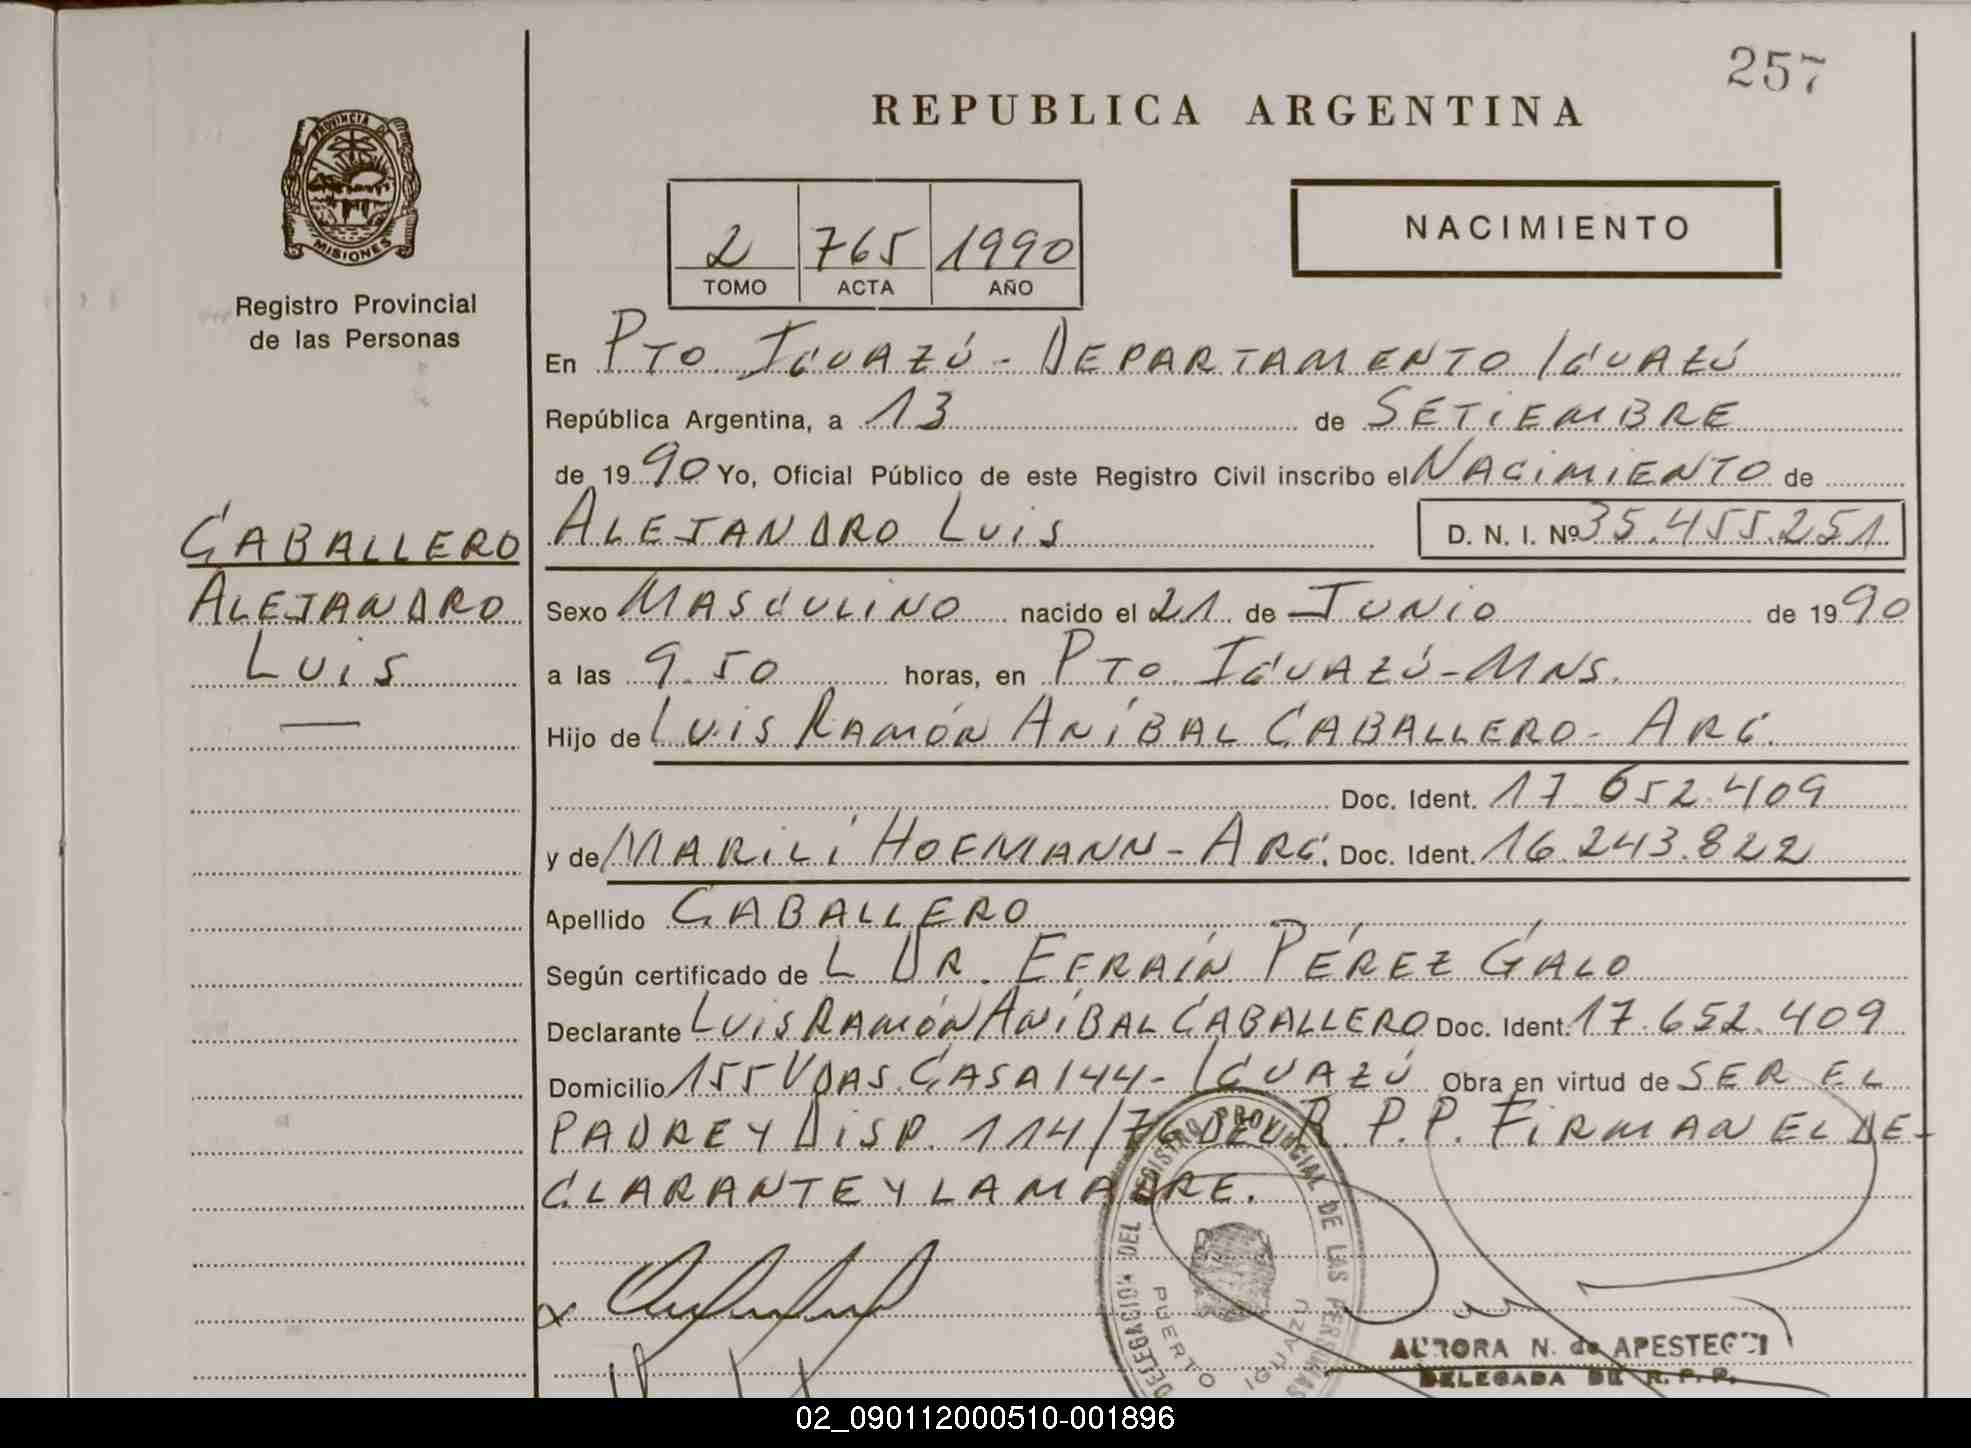 257
REPUBLICA ARGENTINA
PROVINCIA DE
MISIONES
Registro Provincial
de las Personas
2 765 1990
TOMO ACTA AÑO
NACIMIENTO
En Pto. Iguazú - Departamento Iguazú
República Argentina, a 13 de Setiembre
de 1990 Yo, Oficial Público de este Registro Civil inscribo el Nacimiento de
Caballero
Alejandro
Luis
Alejandro Luis D. N. I. Nº 35.455.251
Sexo Masculino nacido el 21 de Junio de 1990
a las 9.50 horas, en Pto. Iguazú - Mns.
Hijo de Luis Ramón Aníbal Caballero - Arg.
Doc. Ident. 17.652.409
y de Marilí Hofmann - Arg. Doc. Ident. 16.243.822
Apellido Caballero
Según certificado de L Dr. Efraín Pérez Galo
Declarante Luis Ramón Aníbal Caballero Doc. Ident. 17.652.409
Domicilio 155 Vdas. Casa 144 - Iguazú Obra en virtud de ser el
padre y Disp. 114/76 del R.P.P. Firman el de-
clarante y la madre.
DELEGACION DEL REGISTRO PROVINCIAL DE LAS PERSONAS
PUERTO IGUAZU
AURORA N. de
DELEGADA DE R.P.P.
02_090112000510-001896